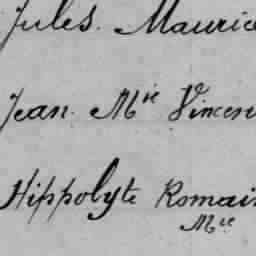 Jules. Maurice
Jean. Mie Vincen
Hippolyte Romain
Mce